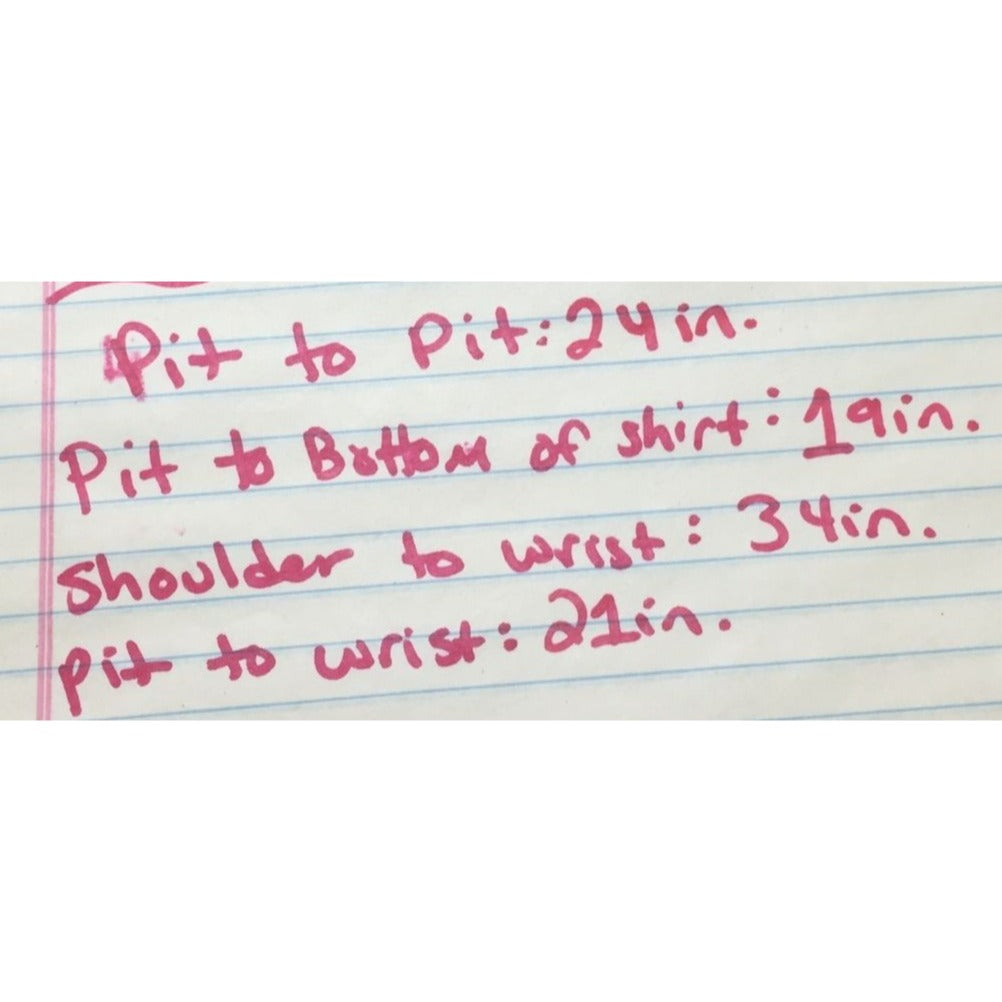 Pit to Pit: 24 in.
Pit to Bottom of shirt: 19in.
Shoulder to wrist: 34in.
pit to wrist: 21in.